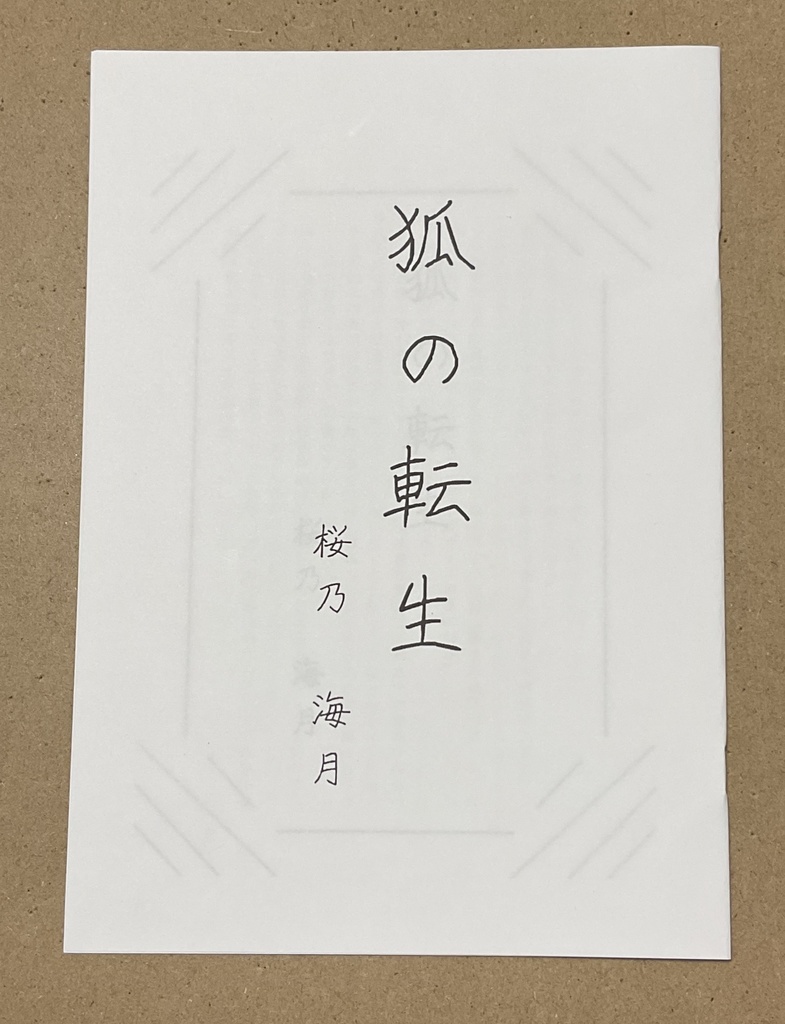 狐の転生
桜乃 海月